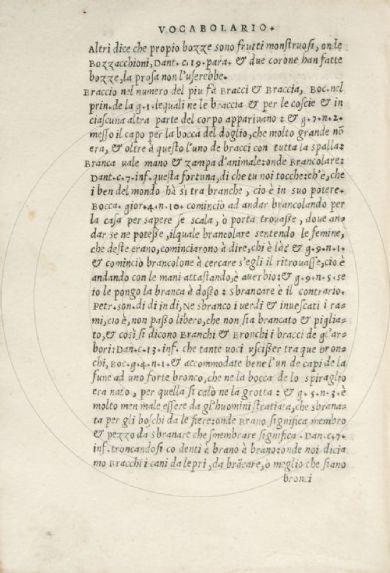 VOCABOLARIO.
Altri dice che propio bozze sono frutti monstruosi, onde
Bozzacchioni, Dant. c. 19. para. & due corone han fatte
bozze, la prosa non l'userebbe.
Braccio nel numero del piu fà Bracci & Braccia, Boc. nel
prin. de la g. 1. lequali ne le braccia & per le coscie & in
ciascuna altra parte del corpo apparivano: & g. 7. n. 2.
messo il capo per la bocca del doglio, che molto grande nō
era, & oltre à questo l'uno de bracci con tutta la spalla:
Branca vale mano & zampa d'animale: onde Brancolare:
Dant. c. 7. inf. questa fortuna, di che tu noi tocche: ch'è, che
i ben del mondo hà si tra branche, cio è in suo potere.
Bocca. gior. 4. n. 10. comincio ad andar brancolando per
la casa per sapere se scala, o porta trovasse, doue an-
dar se ne potesse, ilquale brancolare sentendo le femine,
che deste erano, cominciarono à dire, chi è là? & g. 9. n. 1.
& comincio brancolone à cercare s'egli il ritrouasse, cio è
andando con le mani attastando, è auerbio: & g. 9. n. 5. se
io le pongo la branca à dosso: sbrancare è il contrario.
Petr. son. di di in di, Ne sbranco i uerdi & inuescati i ra-
mi, cio è, non passo libero, che non sia brancato & piglia-
to, & così si dicono Branchi & Bronchi i bracci de gl'ar-
bori: Dant. c. 13. inf. che tante uoci uscisser tra que bron-
chi, Boc. g. 4. n. 1. & accommodate bene l'un de capi de la
fune ad uno forte bronco, che ne la bocca de lo spiraglio
era nato, per quella si calò ne la grotta: & g. 5. n. 3. è
molto men male essere da gl'huomini stratiata, che sbrana-
ta per gli boschi da le fiere: onde Brano significa membro
& pezzo da sbranare che smembrare significa. Dan. c. 7.
inf. troncandosi co denti à brano à brano: onde noi dicia
mo Bracchi i cani da lepri, da brācare, o meglio che siano
bronci